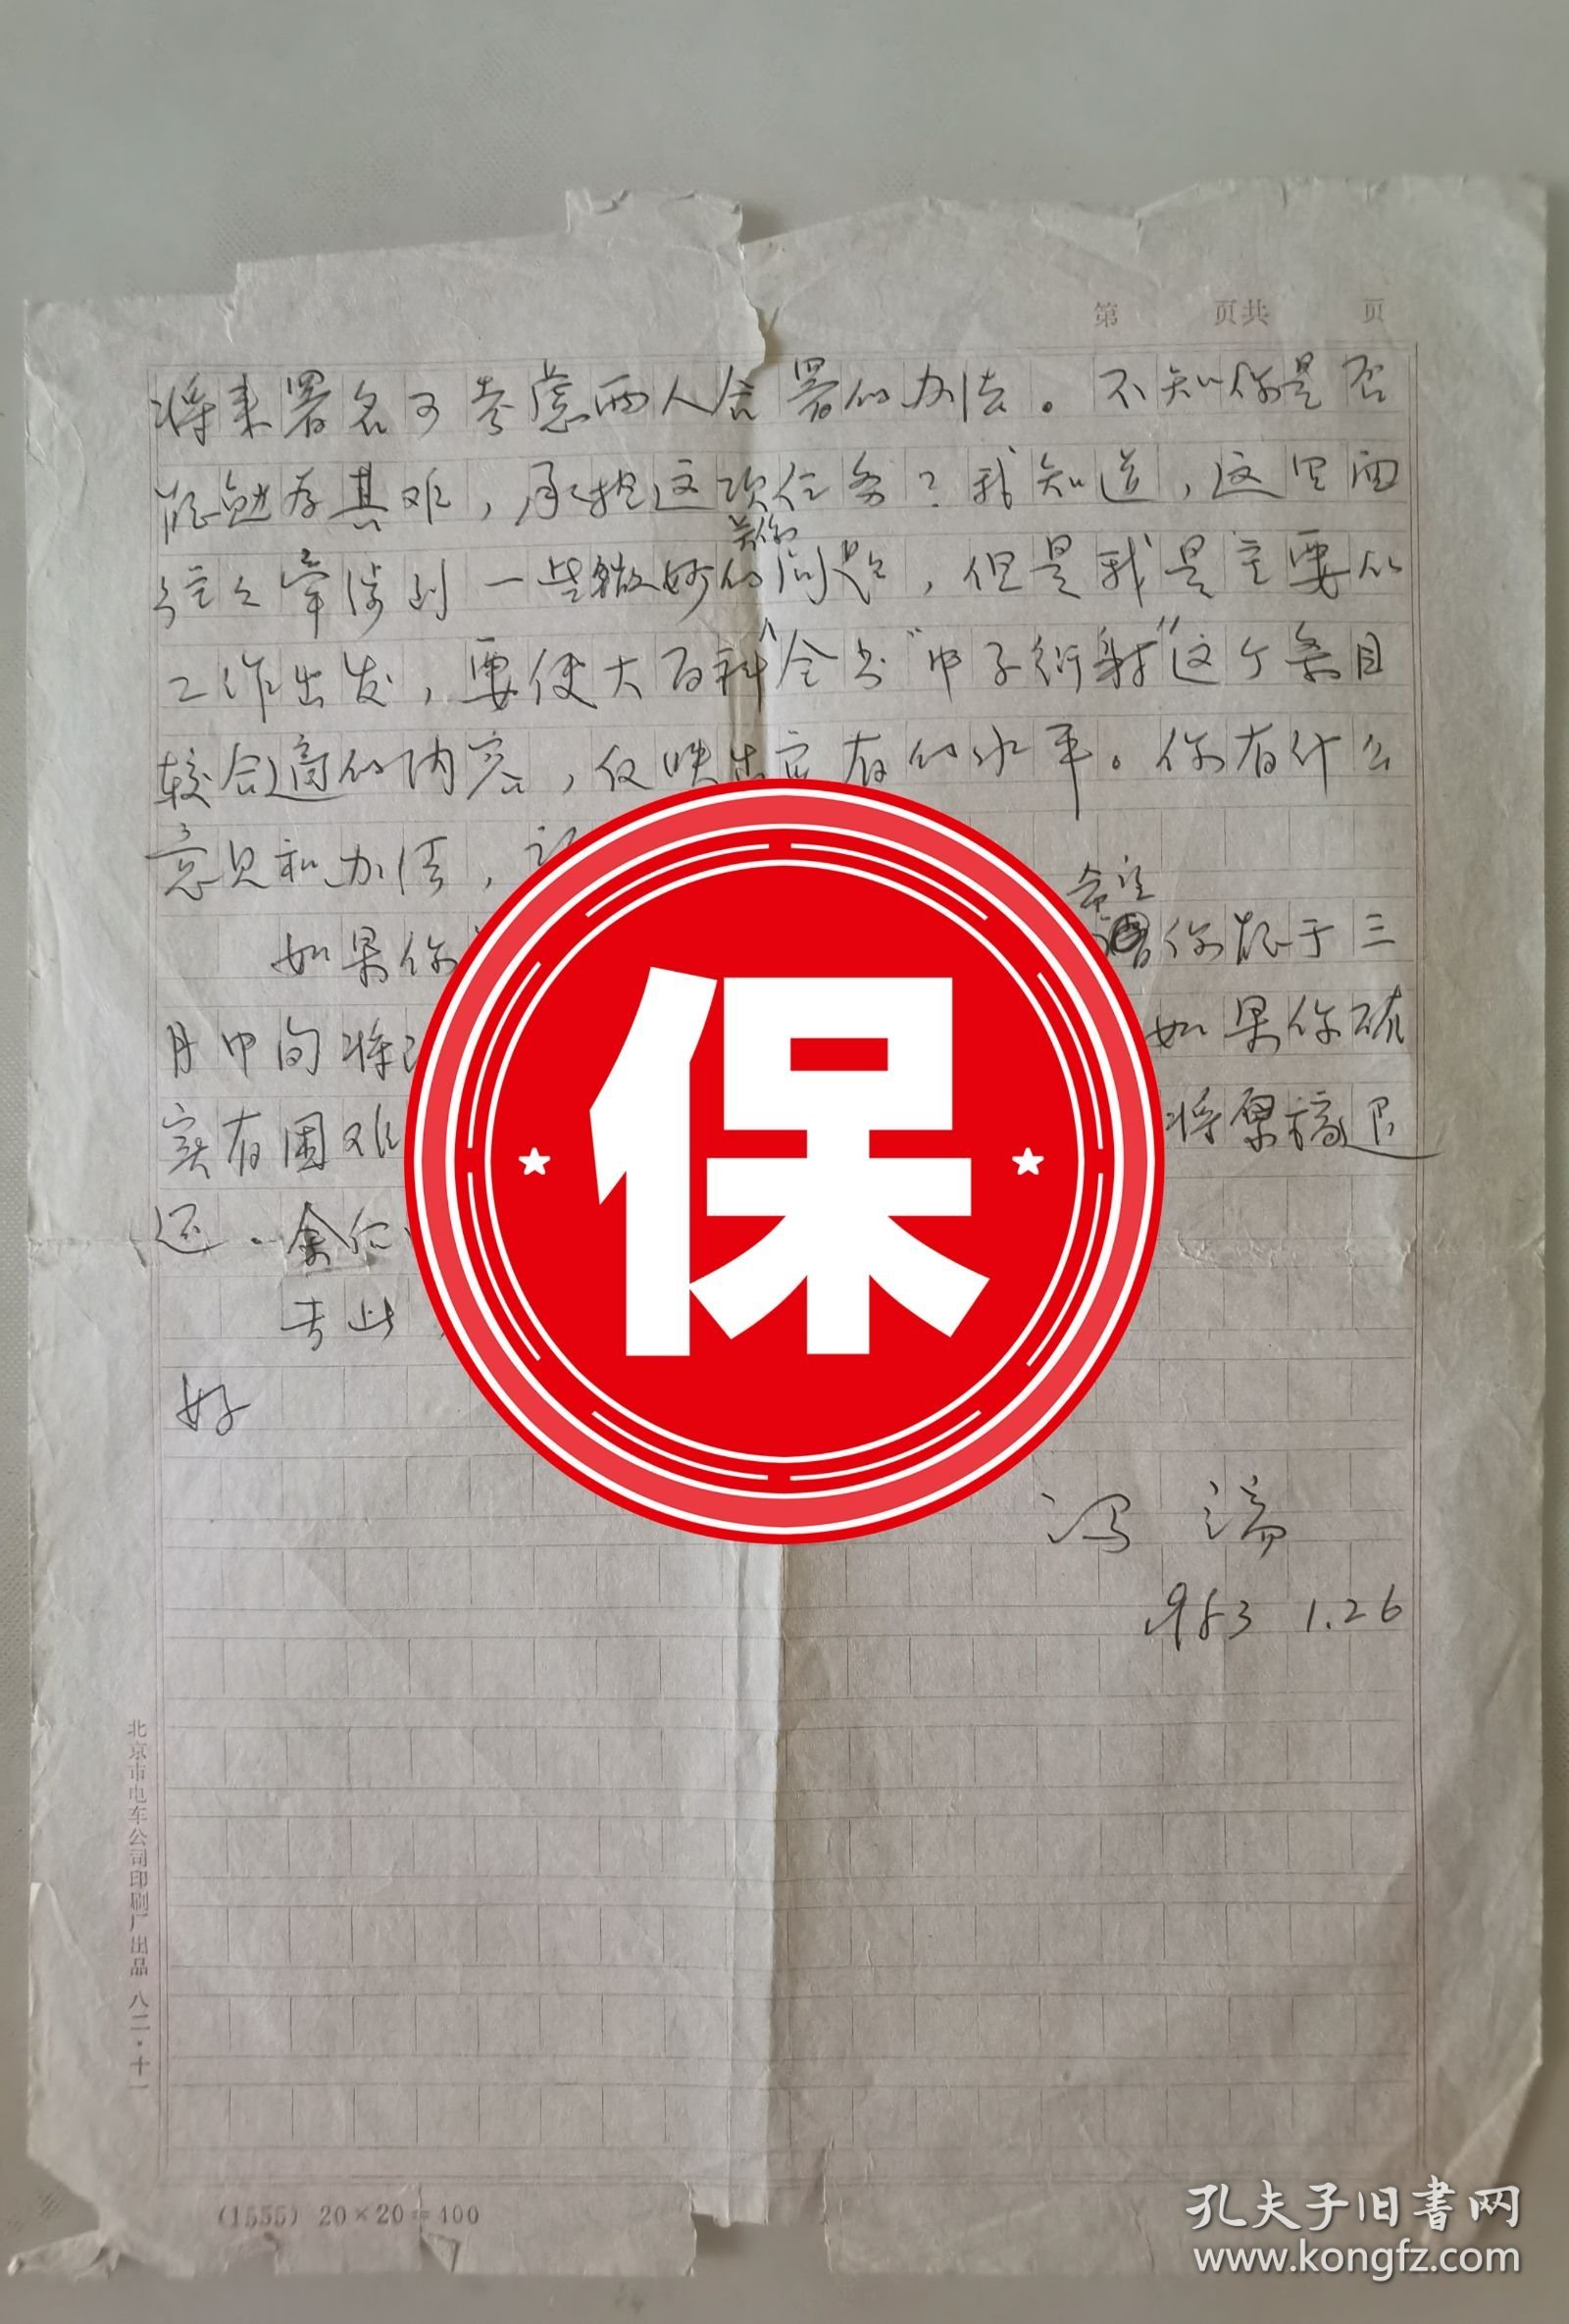 第 页共 页
将来署名可考虑两人合署的办法。不知你是否
能勉为其难，承担这项任务？我知道，这里面
往往牵涉到一些微妙的关系问题，但是我是主要从
工作出发，要使大百科全书“中子衍射”这个条目
较合适的内容，反映出应有的水平。你有什么
意见和办法，
如果你 希望你能于三
月中旬将 如果你确
实有困难 将原稿退
还。余
专此
好
冯 端
1983 1.26
保
北京市电车公司印刷厂出品 八二·十一
(1555) 20×20=400
孔夫子旧书网
www.kongfz.com